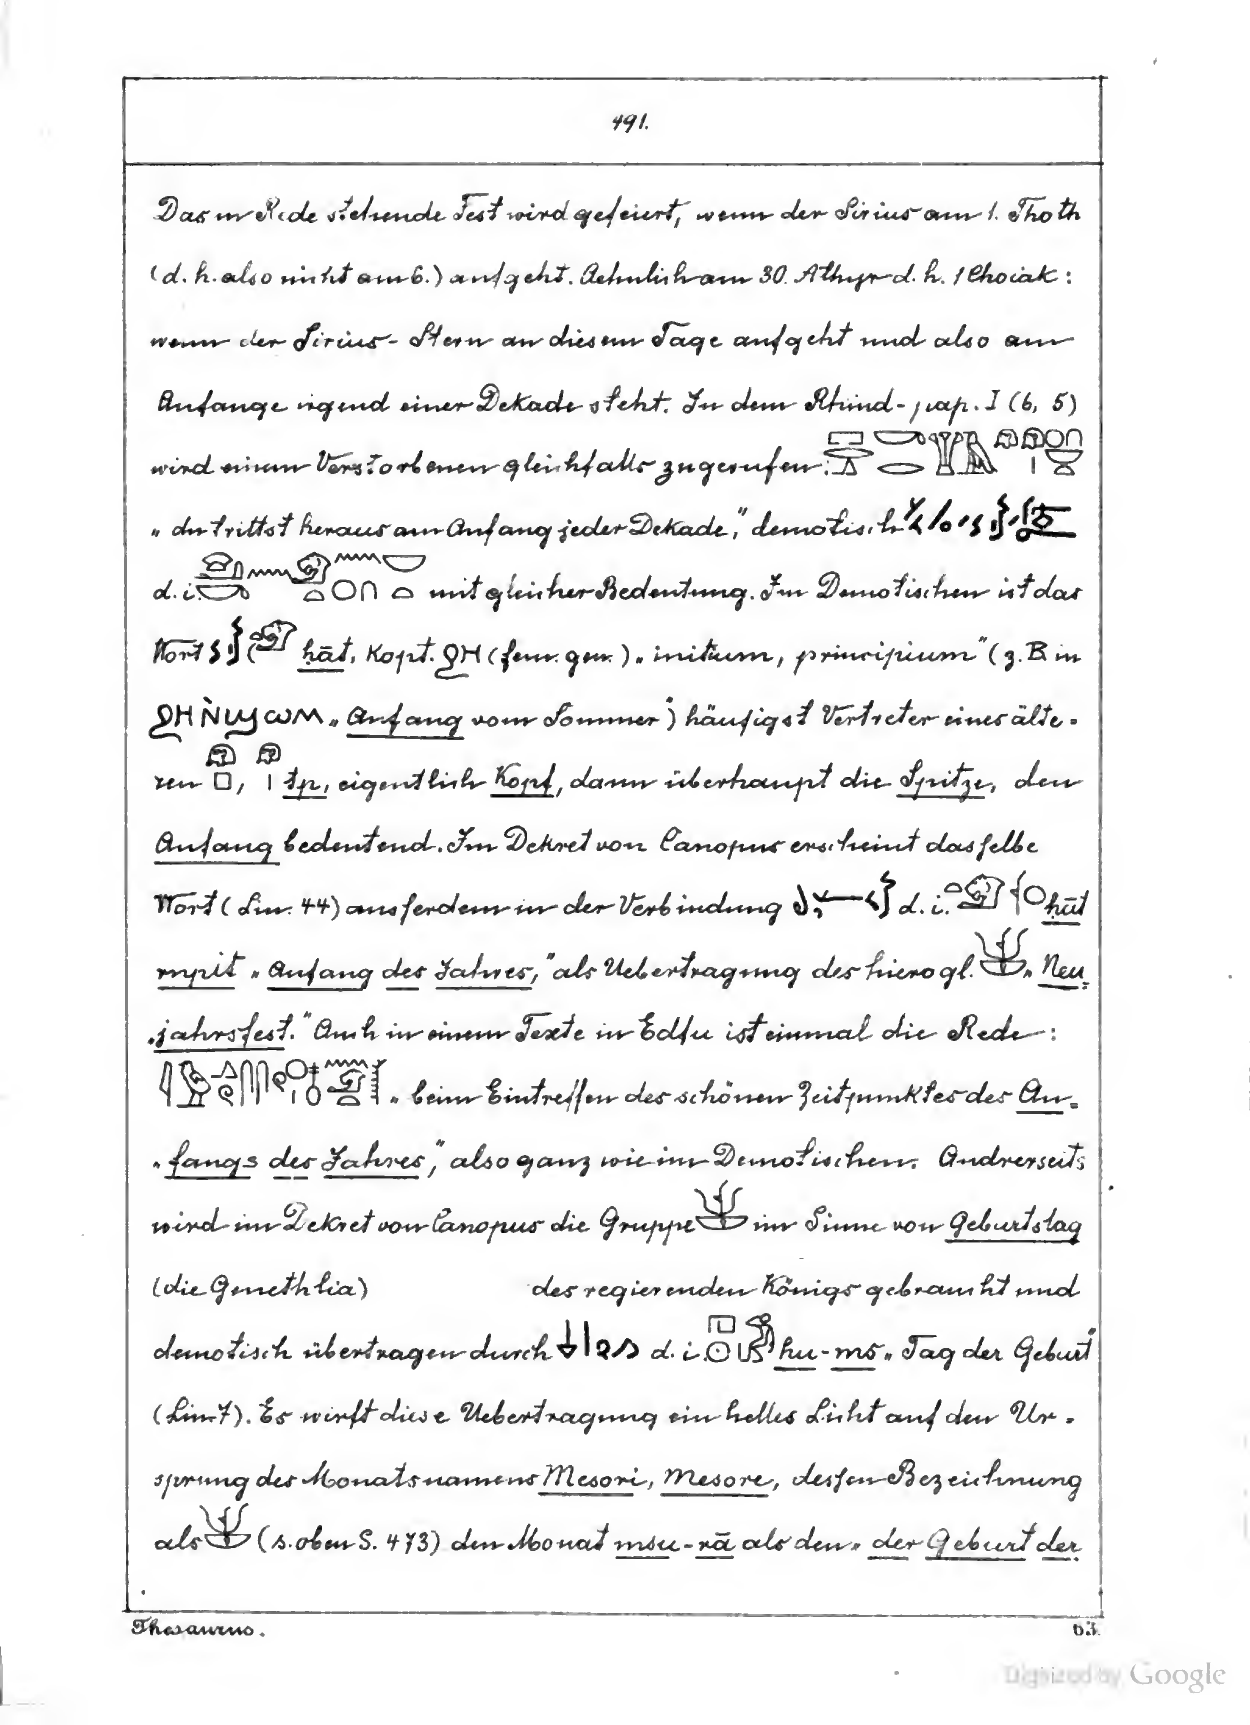 491.
Das in Rede stehende Fest wird gefeiert, wenn der Sirius am 1. Thoth
(d. h. also nicht am 6.) aufgeht. Aehnlich am 30. Athyr d. h. 1 Choiak:
wenn der Sirius-Stern an diesem Tage aufgeht und also am
Anfange irgend einer Dekade steht. In dem Rhind-pap. I (6, 5)
wird einem Verstorbenen gleichfalls zugerufen:
„du trittst heraus am Anfang jeder Dekade," demotisch
d. i. mit gleicher Bedeutung. Im Demotischen ist das
Wort ḥāt, Kopt. ϩⲏ (fem. gen.) „initium, principium" (z. B in
ϩⲏ ⲛ̀ϣⲱⲙ „Anfang vom Sommer") häufigst Vertreter eines älte-
ren , tp, eigentlich Kopf, dann überhaupt die Spitze, den
Anfang bedeutend. Im Dekret von Canopus erscheint dasselbe
Wort (Lin. 44) ausserdem in der Verbindung d. i. ḥāt
rnpit „Anfang des Jahres," als Uebertragung des hierogl. „Neu-
jahrsfest." Auch in einem Texte in Edfu ist einmal die Rede:
„beim Eintreffen des schönen Zeitpunktes des An-
„fangs des Jahres," also ganz wie im Demotischen. Andrerseits
wird im Dekret von Canopus die Gruppe im Sinne von Geburtstag
(die Genethlia) des regierenden Königs gebraucht und
demotisch übertragen durch d. i. hu-ms „Tag der Geburt"
(Lin. 7). Es wirft diese Uebertragung ein helles Licht auf den Ur-
sprung des Monatsnamens Mesori, Mesore, dessen Bezeichnung
als (s. oben S. 473) den Monat msu-rā als den „der Geburt der
Thesaurus.
63.
Digitized by Google